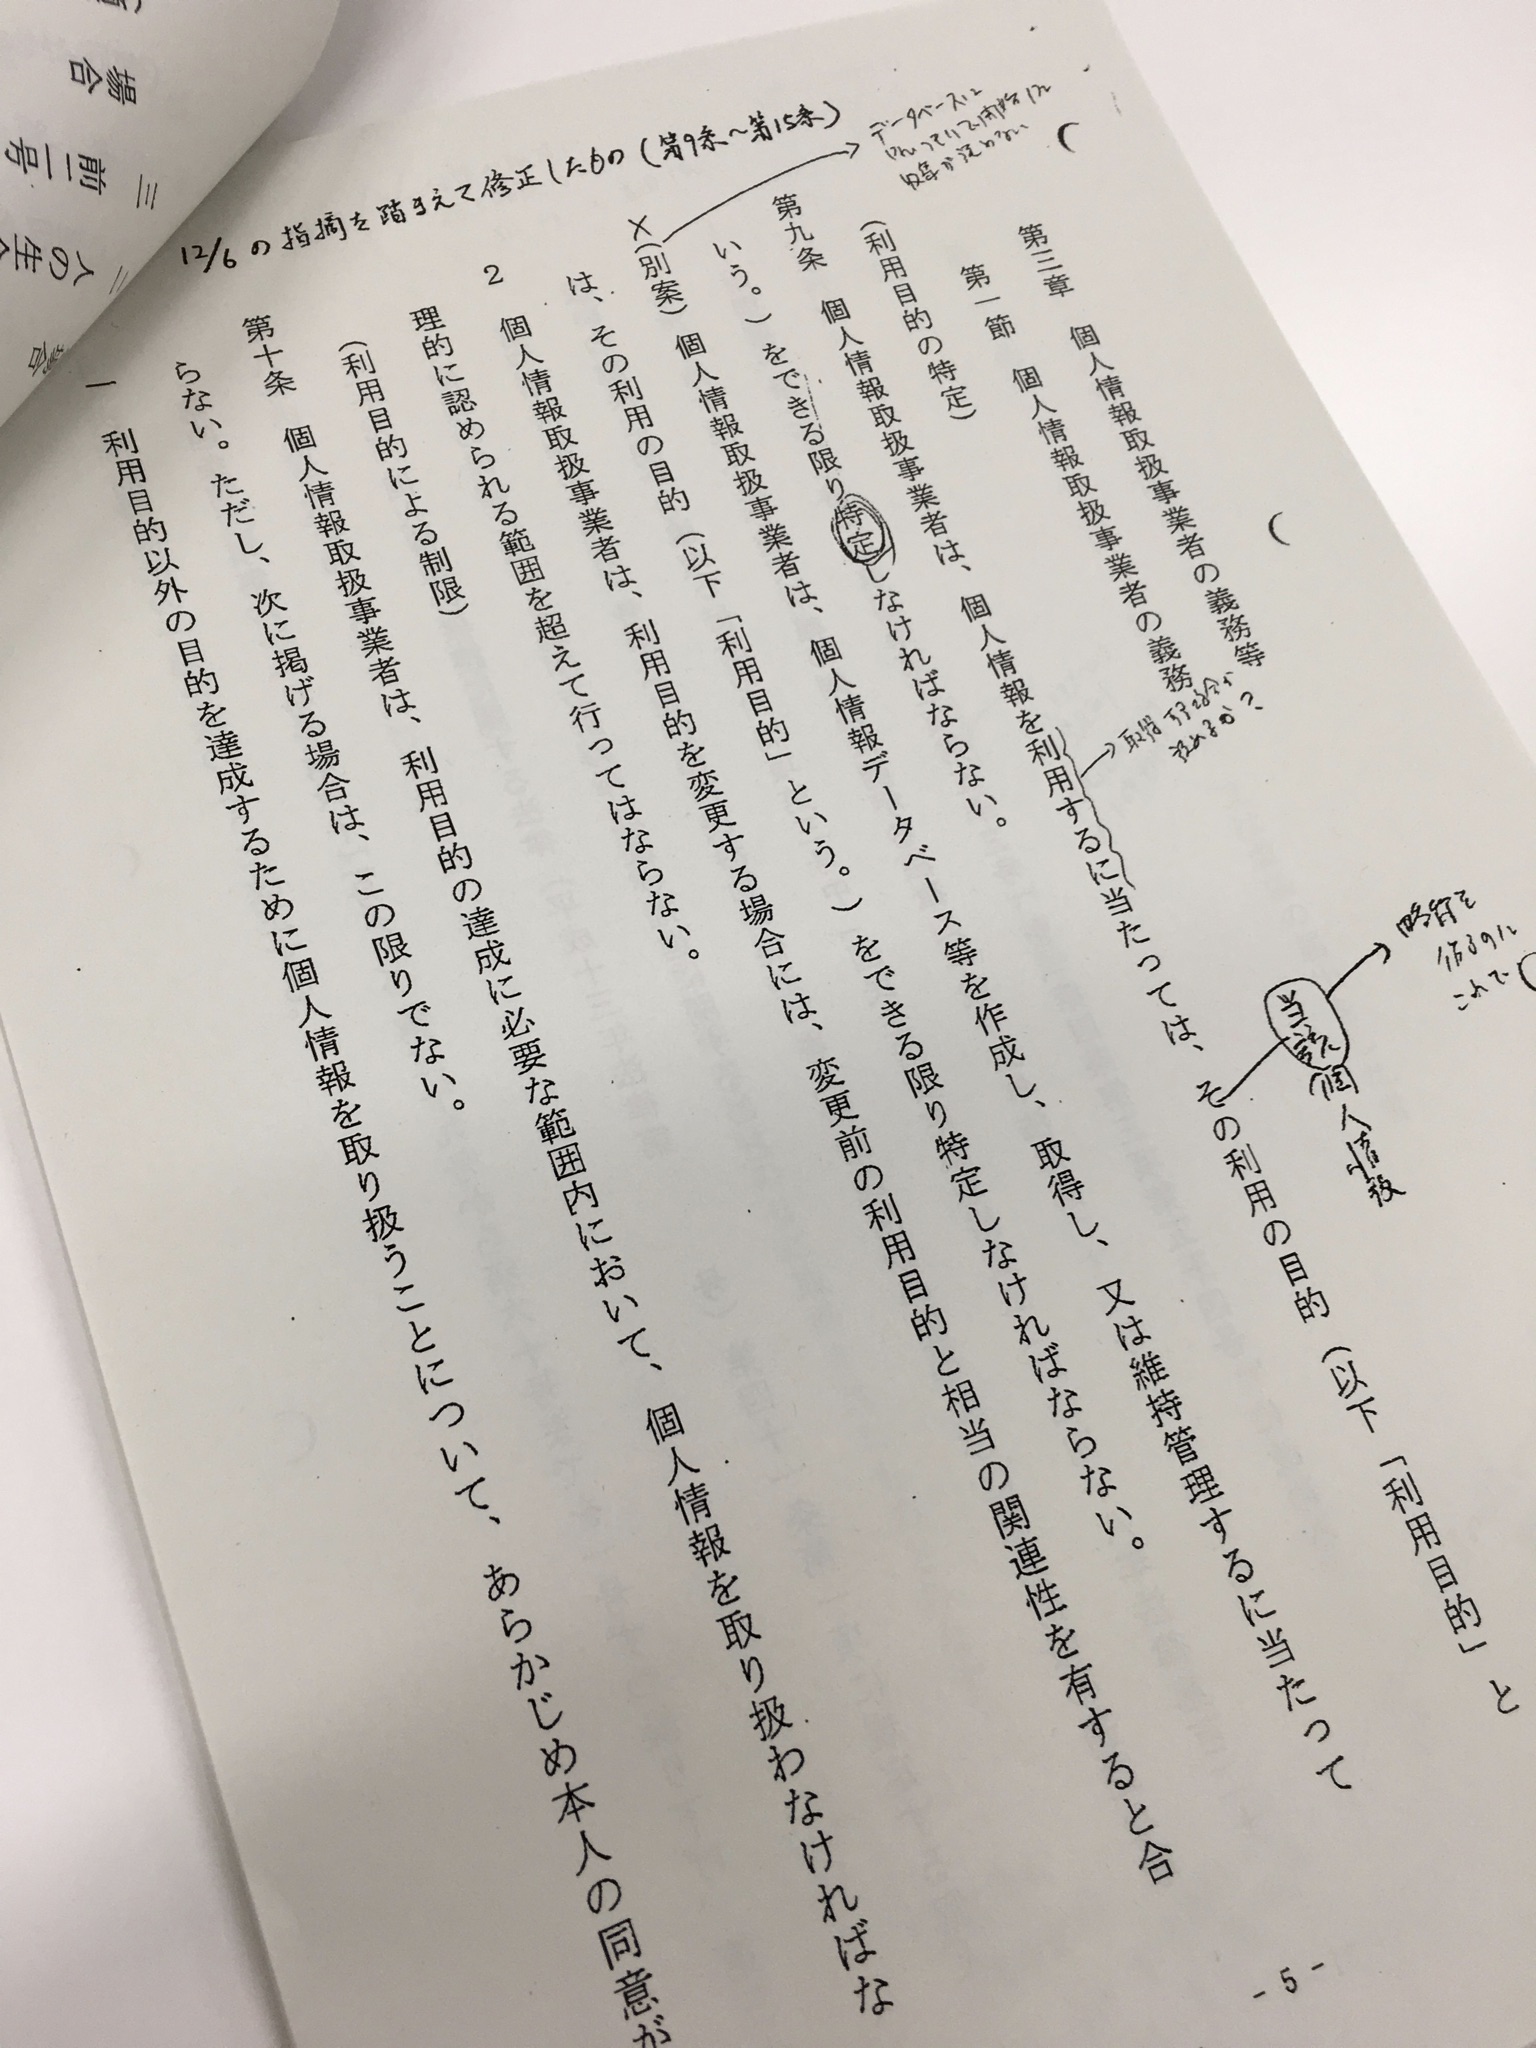 12/6の指摘を踏まえて修正したもの（第9条〜第15条）
第三章　個人情報取扱事業者の義務等
第一節　個人情報取扱事業者の義務
（利用目的の特定）
第九条　個人情報取扱事業者は、個人情報を利用するに当たっては、その利用の目的（以下「利用目的」と
いう。）をできる限り特定しなければならない。
（別案）個人情報取扱事業者は、個人情報データベース等を作成し、取得し、又は維持管理するに当たって
は、その利用の目的（以下「利用目的」という。）をできる限り特定しなければならない。
2　個人情報取扱事業者は、利用目的を変更する場合には、変更前の利用目的と相当の関連性を有すると合
理的に認められる範囲を超えて行ってはならない。
（利用目的による制限）
第十条　個人情報取扱事業者は、利用目的の達成に必要な範囲内において、個人情報を取り扱わなければな
らない。ただし、次に掲げる場合は、この限りでない。
一　利用目的以外の目的を達成するために個人情報を取り扱うことについて、あらかじめ本人の同意が
×
データベースに
取得する場合が
読めるか？
当該個人情報
これで
- 5 -
場合
三　前二号
人の生